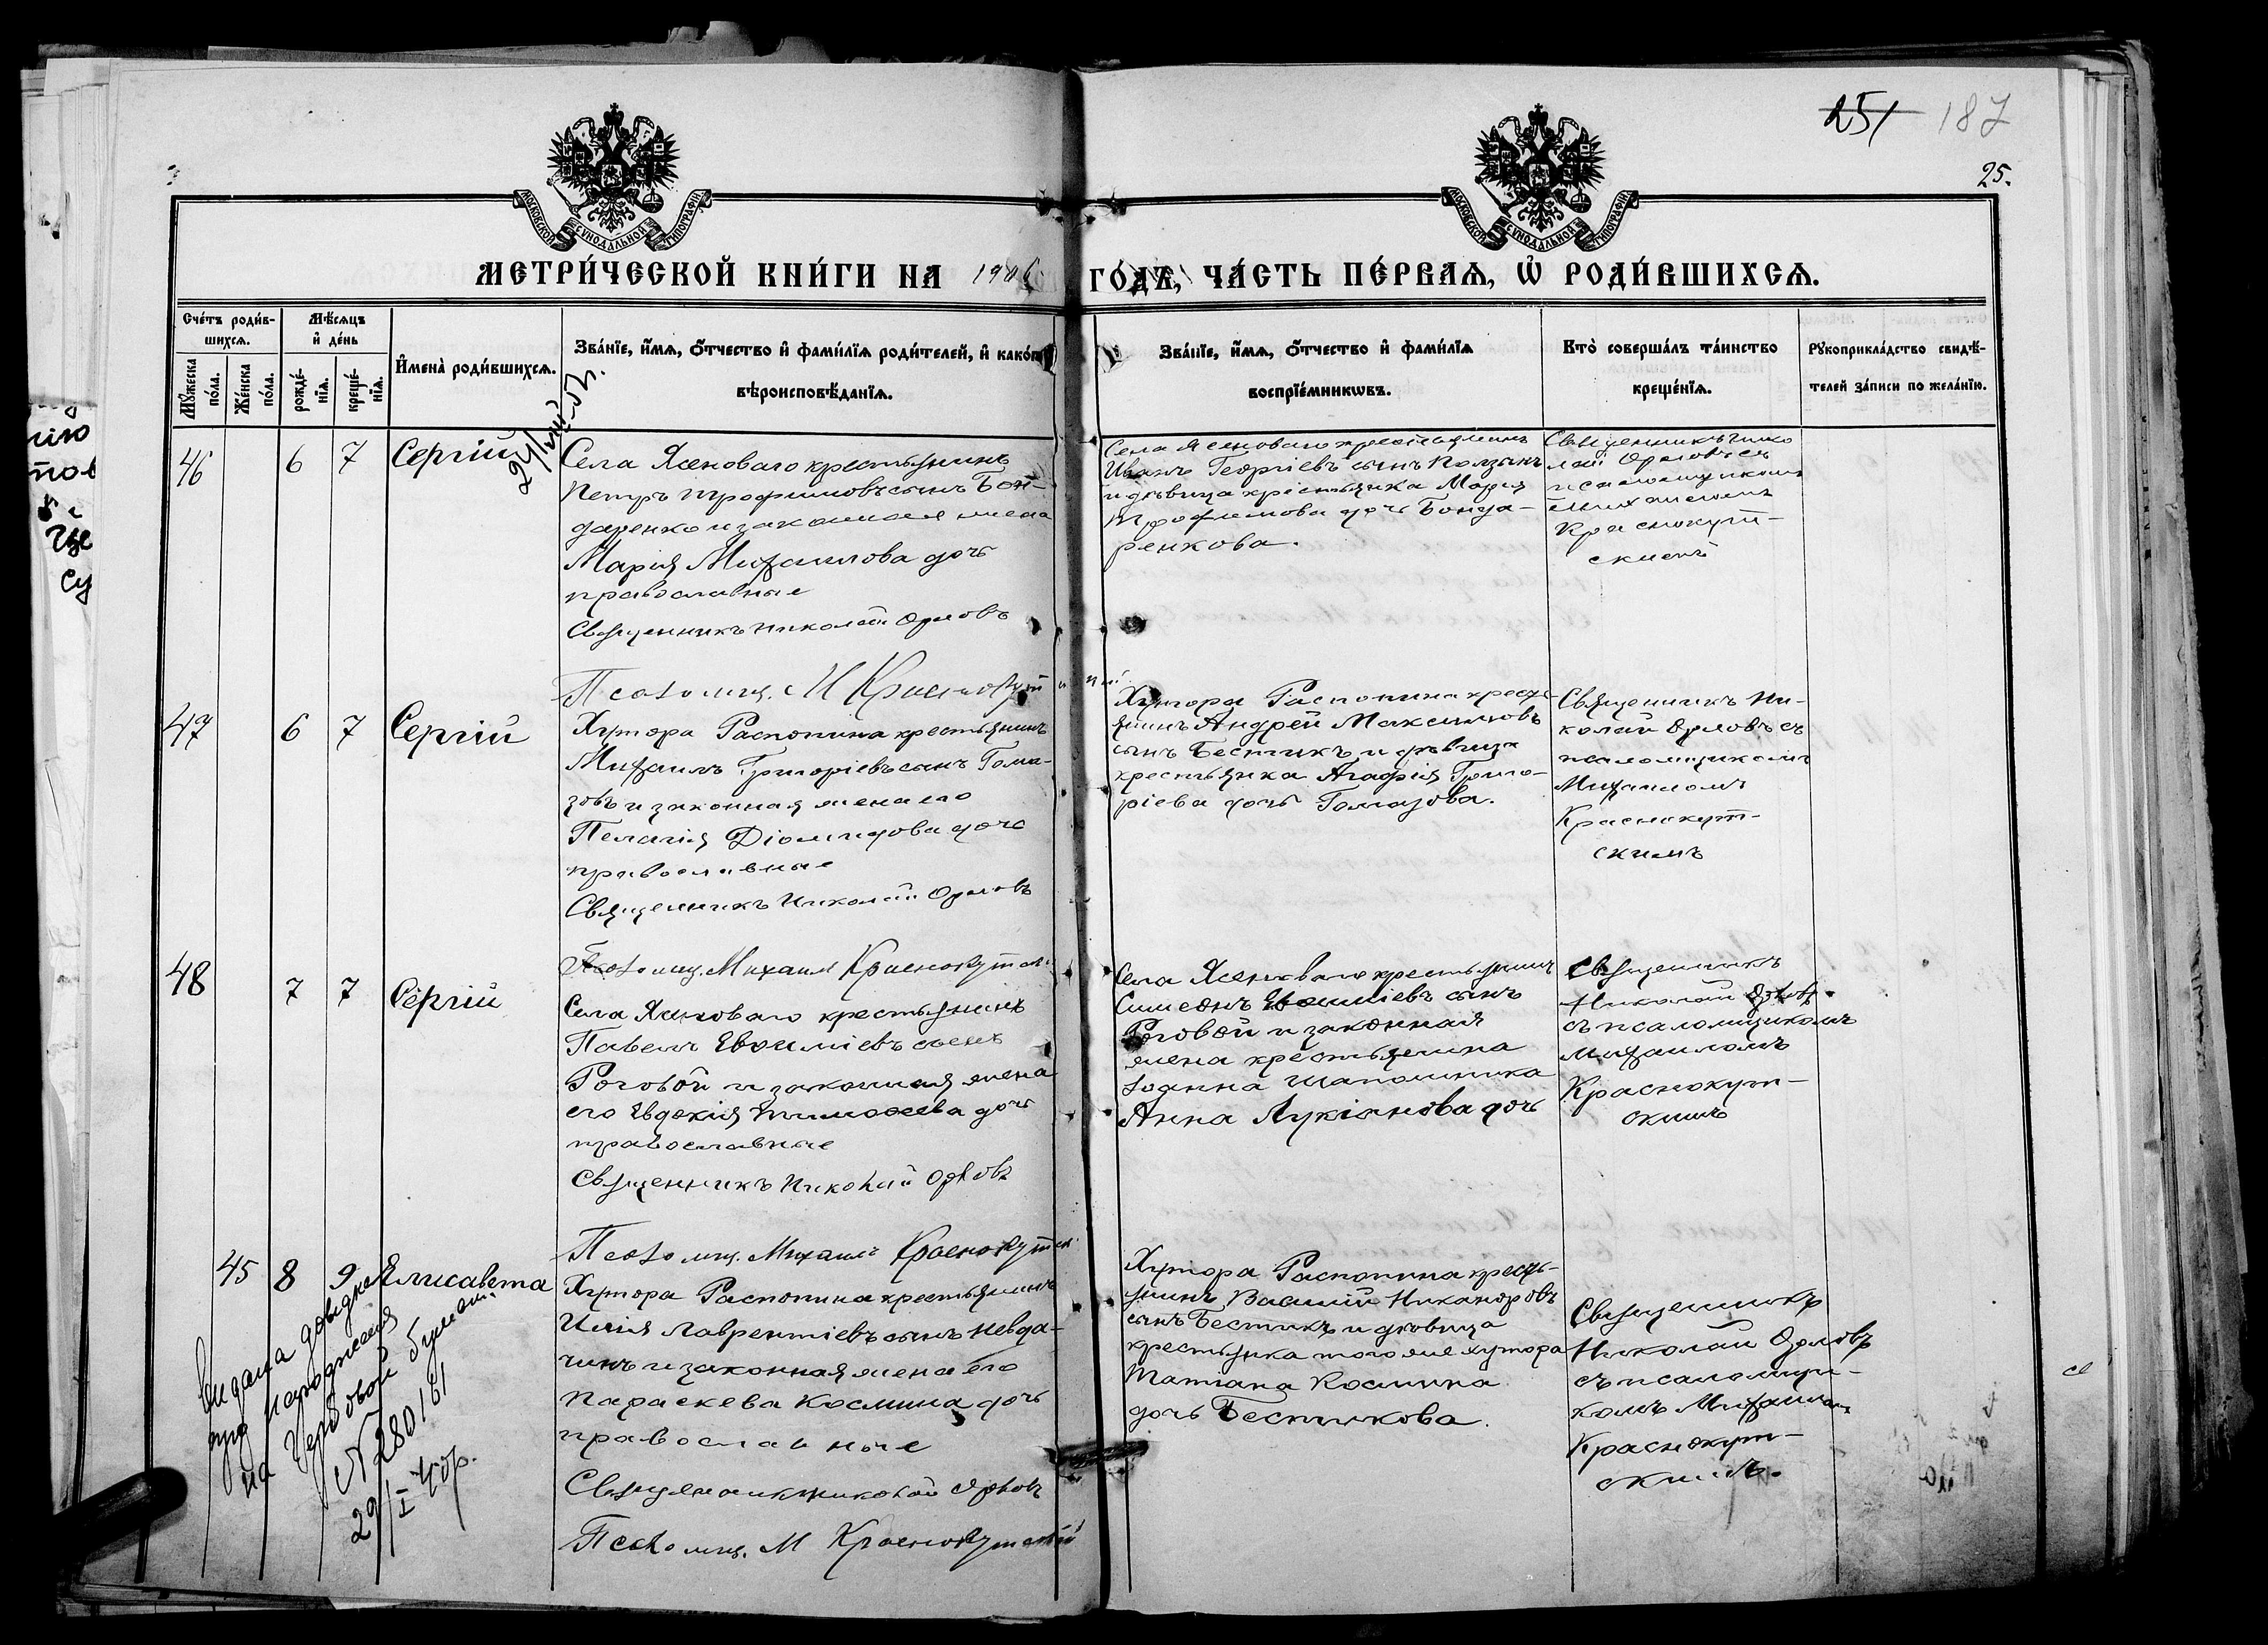 251 187
25.
МОСКОВСКОЙ СУНОДАЛЬНОЙ ТИПОГРАФІИ
МОСКОВСКОЙ СУНОДАЛЬНОЙ ТИПОГРАФІИ
МЕТРИ́ЧЕСКОЙ КНИ́ГИ НА 1906 ГО́ДЪ, ЧА́СТЬ ПЕ́РВАѦ, Ѡ҆ РОДИ́ВШИХСѦ.
Сче́тъ роди́в-
шихсѧ.
Мꙋ́жеска по́ла.
Же́нска по́ла.
Мѣ́сѧцъ
и҆ де́нь
рожде́-
нїѧ.
креще́-
нїѧ.
И҆мена̀ роди́вшихсѧ.
Зва́нїе, и҆́мѧ, ѻ҆́тчество и҆ фами́лїѧ роди́телей, и҆ како́гѡ
вѣроисповѣ́данїѧ.
Зва́нїе, и҆́мѧ, ѻ҆́тчество и҆ фами́лїѧ
воспрїе́мникѡвъ.
Кто̀ соверша́лъ та́инство
креще́нїѧ.
Рꙋкоприкла́дство свидѣ́-
телей за́писи по жела́нїю.
46 6 7 Сергій
Села Ясеноваго крестьянинъ
Петръ Трофимовъ сынъ Бон-
даренко и законная жена
Марія Михаилова дочь
православные
Священникъ Николай Орловъ
Псаломщ. М Краснокутскій
Села Ясеноваго крестьянинъ
Иванъ Георгіевъ сынъ
и дѣвица крестьянка Марія
Трофимова дочь Бонда-
ренкова.
Священникъ Нико
лай Орловъ съ
псаломщикомъ
Михаиломъ
Краснокут-
скимъ
47 6 7 Сергій
Хутора Распопина крестьянинъ
Михаилъ Григоріевъ сынъ Гома-
зовъ и законная жена его
Пелагія Діомидова дочь
православные
Священникъ Николай Орловъ
Псаломщ. Михаил Краснокутск
Хутора Распопина кресть-
янинъ Андрей Максимовъ
сынъ Бестикъ и дѣвица
крестьянка Агафія Григо-
ріева дочь Гомазова.
Священникъ Ни-
колай Орловъ съ
псаломщикомъ
Михаиломъ
Краснокут-
скимъ
48 7 7 Сергій
Села Ясеноваго крестьянинъ
Павелъ Евфиміевъ сынъ
Роговой и законная жена
его Евдокія Тимофеева дочь
православные
Священникъ Николай Орловъ
Псаломщ. Михаилъ Краснокутск
Села Ясеноваго крестьянинъ
Симеонъ Евфиміевъ сынъ
Роговой и законная
жена крестьянина
Іоанна Шапошника
Анна Лукіанова дочь
Священникъ
Николай Орловъ
съ псаломщикомъ
Михаиломъ
Краснокут-
скимъ
45 8 9 Елисавета
Хутора Распопина крестьянинъ
Илія Лаврентіевъ сынъ Невда-
чинъ и законная жена его
Параскева Космина дочь
православные
Священникъ Николай Орловъ
Псаломщ. М Краснокутскій
Хутора Распопина кресть-
янинъ Василій Никаноровъ
сынъ Бестикъ и дѣвица
крестьянка того же хутора
Татіана Космина
дочь Бестикова.
Священникъ
Николай Орловъ
съ псаломщи-
комъ Михаиломъ
Краснокут-
скимъ.
Видана довідка
про народження
на Гербовой бумаге
№ 280161
29/I-40р.